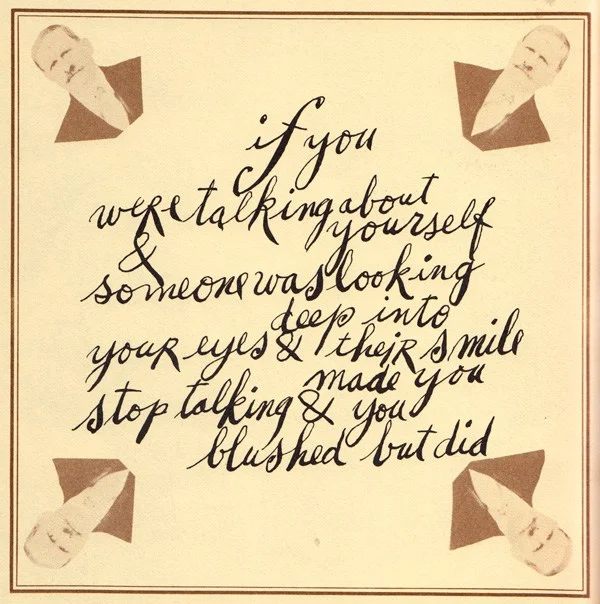 if you
were talking about
yourself
&
someone was looking
deep into
your eyes & their smile
made you
stop talking & you
blushed but did